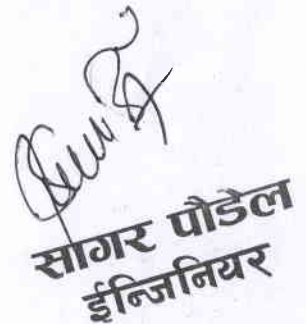 सागर पौडेल
ईन्जिनियर